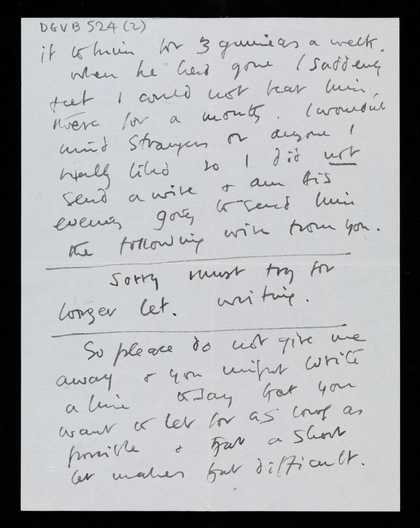 DGVB 524 (2)
it to him for 3 guineas a week.
When he had gone I suddenly
felt I could not bear him
there for a month. I wouldn't
mind strangers or anyone I
really liked so I did not
send a wire & am this
evening going to send him
the following wire from you.
Sorry must try for
longer let. Writing.
So please do not give me
away & you might write
a line to say that you
want to let for as long as
possible & that a short
let makes that difficult.